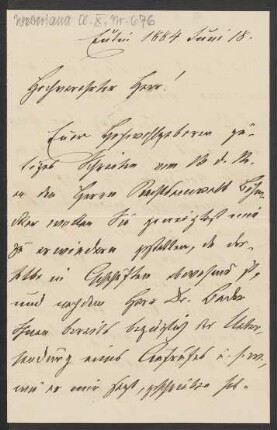 Weberiana Cl. X, Nr. 676
Eutin 1884 Juni 18.
Hochverehrter Herr!
Euer Hochwohlgeboren gü-
tiges Schreiben vom 16. d. M.
an den Herrn Rechtsanwalt Böhm-
cker wollen Sie geneigtest mir
zu erwiedern gestatten, da der-
selbe in Geschäften abwesend ist,
und nachdem Herr Dr.
Ihnen bereits bezüglich der Ueber-
sendung eines Aufrufes u. s. w.,
wie er mir sagt, geschrieben hat.